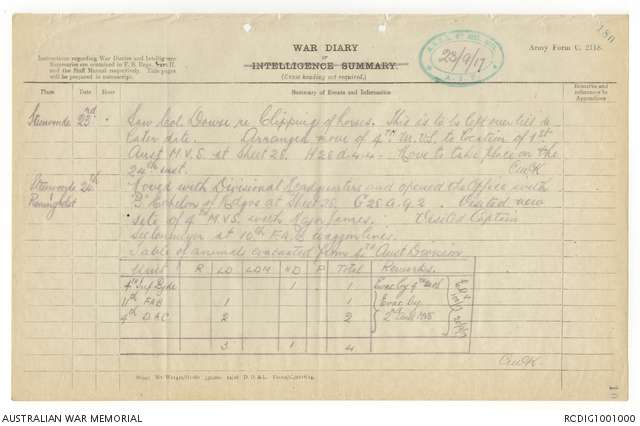 180
WAR DIARY
or
INTELLIGENCE SUMMARY.
(Erase heading not required.)
Army Form C. 2118.
Instructions regarding War Diaries and Intelligence
Summaries are contained in F. S. Regs., Part II.
and the Staff Manual respectively. Title pages
will be prepared in manuscript.
23/9/17
A.I.F.
Place Date Hour Summary of Events and Information Remarks and references to Appendices
23rd Saw Col. Dowse re Clipping of horses. This is to be left over till a
later date. Arranged move of 4th M.V.S. to location of 1st
Aust M.V.S. at Sheet 28. H28 d 4.4. Move to take place on the
24th inst.
24th Moved with Divisional Headquarters and opened the Office with
"B" Echelon of Hdqrs at Sheet 28. G28 a 9.2. Visited new
site of 4th M.V.S. with Major James. Visited Captain
at 10th F.A.B. waggon lines.
Table of animals evacuated from 4th Aust Division
Unit R LD LDM HD P Total Remarks
4th Inf Bgde 1 1 Evac by 4th
11th FAB 1 1 Evac by
4th DAC 2 2 2nd Aust MVS
3 1 4
AUSTRALIAN WAR MEMORIAL
RCDIG1001000